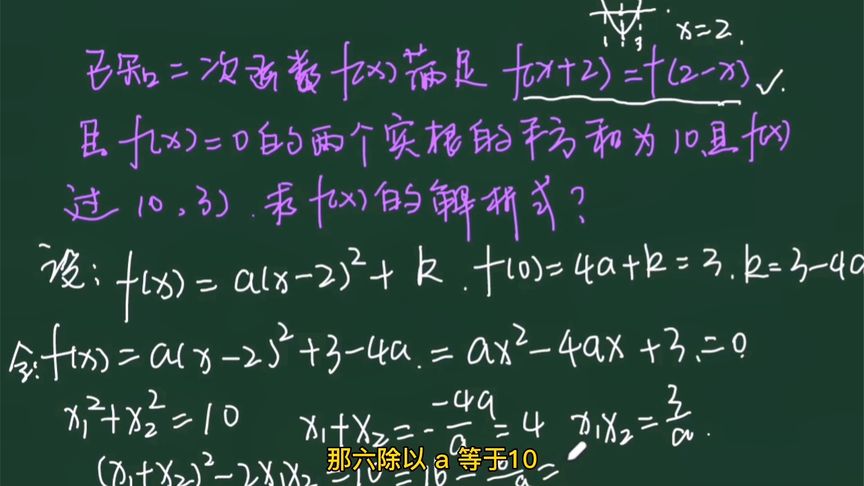 1 1 3 x=2.
已知二次函数f(x)满足 f(x+2)=f(2-x) ✓.
且 f(x)=0的两个实根的平方和为10,且f(x)
过(0,3).求f(x)的解析式?
设: f(x)=a(x-2)²+k. f(0)=4a+k=3. k=3-4a
令:f(x)=a(x-2)²+3-4a.=ax²-4ax+3.=0
x₁²+x₂²=10 x₁+x₂=-\frac{-4a}{a}=4 x₁x₂=\frac{3}{a}.
(x₁+x₂)²-2x₁x₂=10=16-
那六除以 a 等于10